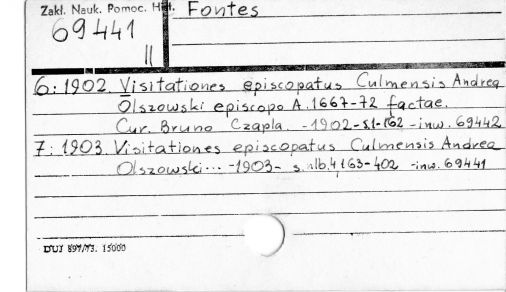 Zakł. Nauk. Pomoc. Hist. Fontes
69441
II
6: 1902. Visitationes episcopatus Culmensis Andrea
Olszowski episcopo A. 1667-72 factae.
Cur. Bruno Czapla. -1902- s.1-162 - inw. 69442
7: 1903. Visitationes episcopatus Culmensis Andrea
Olszowski... -1903- s. nlb. 4 163-402 - inw. 69441
DUJ 897/73. 15000